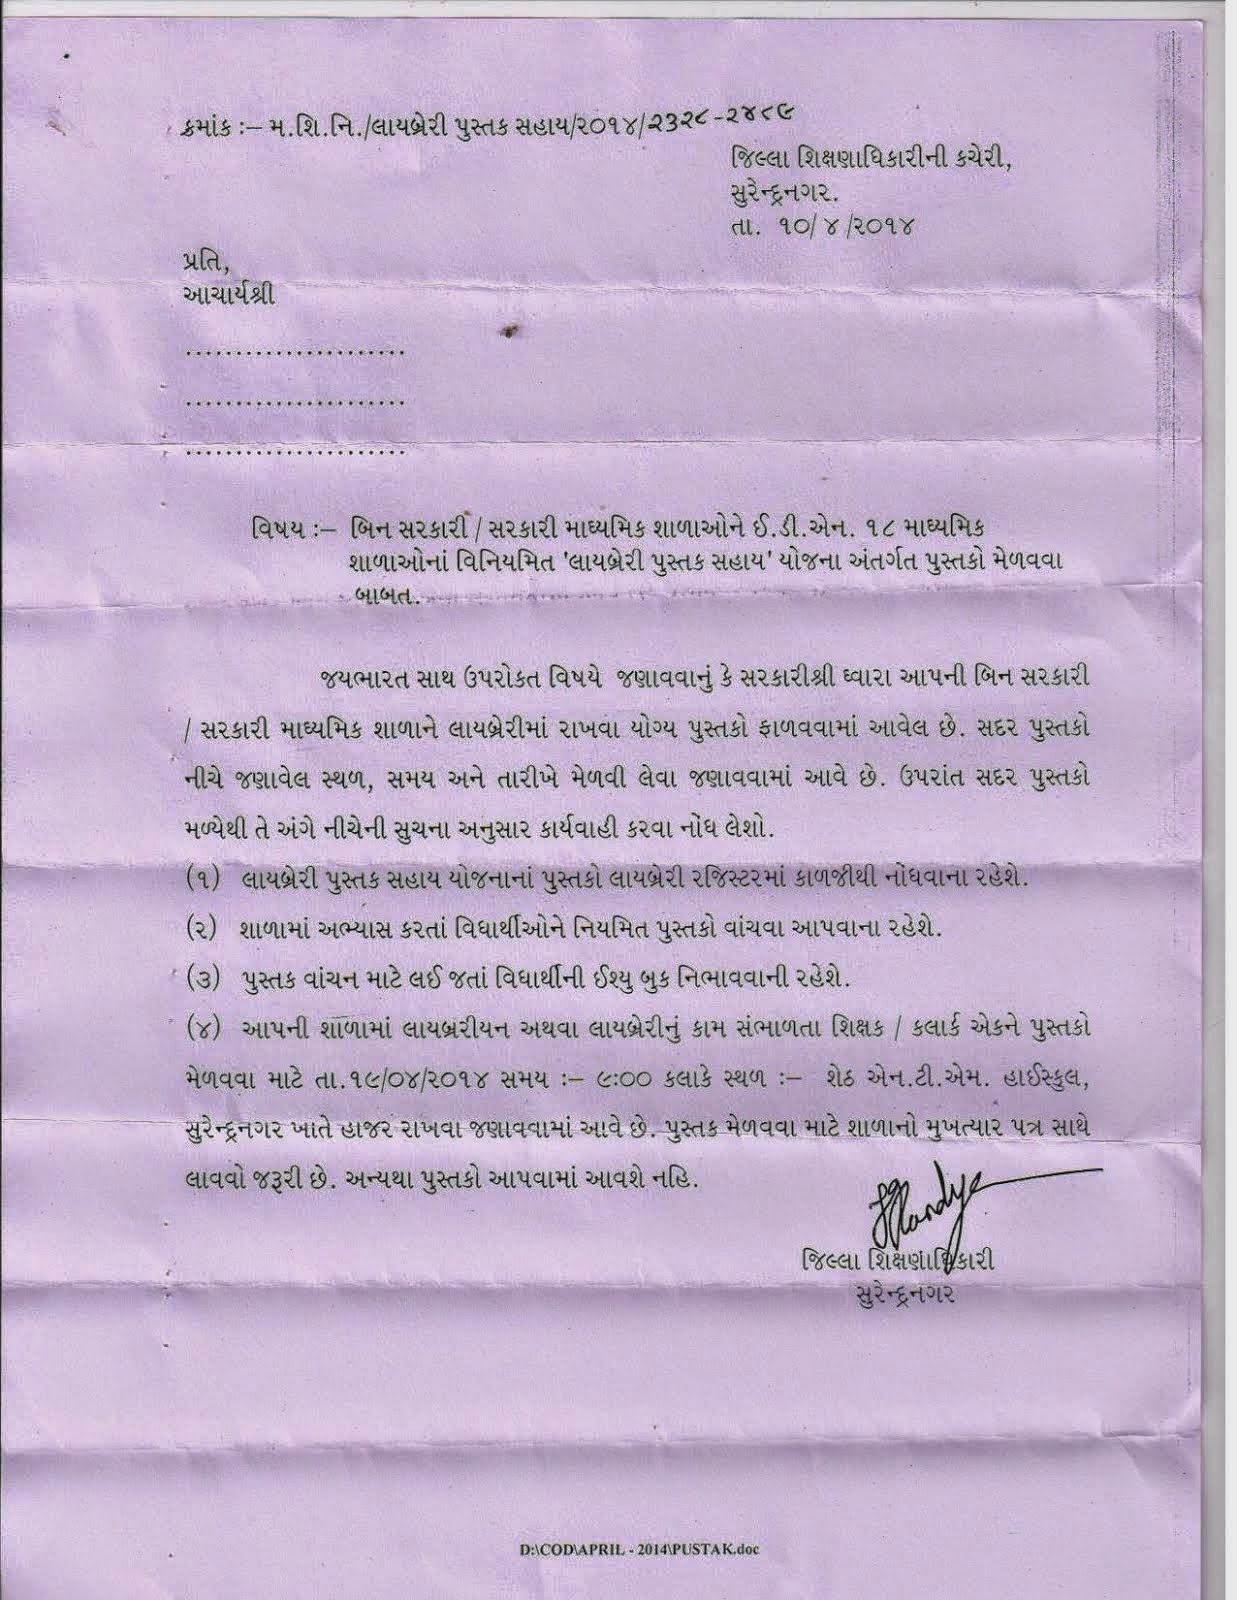 ક્રમાંક :– મ.શિ.નિ./લાયબ્રેરી પુસ્તક સહાય/૨૦૧૪/૨૩૨૮-૨૪૮૯
જિલ્લા શિક્ષણાધિકારીની કચેરી,
સુરેન્દ્રનગર.
તા. ૧૦/ ૪ /૨૦૧૪
પ્રતિ,
આચાર્યશ્રી
......................
......................
......................
વિષય :– બિન સરકારી / સરકારી માધ્યમિક શાળાઓને ઈ.ડી.એન. ૧૮ માધ્યમિક
શાળાઓનાં વિનિયમિત 'લાયબ્રેરી પુસ્તક સહાય' યોજના અંતર્ગત પુસ્તકો મેળવવા
બાબત.
જયભારત સાથ ઉપરોકત વિષયે જણાવવાનું કે સરકારીશ્રી ધ્વારા આપની બિન સરકારી
/ સરકારી માધ્યમિક શાળાને લાયબ્રેરીમાં રાખવા યોગ્ય પુસ્તકો ફાળવવામાં આવેલ છે. સદર પુસ્તકો
નીચે જણાવેલ સ્થળ, સમય અને તારીખે મેળવી લેવા જણાવવામાં આવે છે. ઉપરાંત સદર પુસ્તકો
મળ્યેથી તે અંગે નીચેની સુચના અનુસાર કાર્યવાહી કરવા નોંધ લેશો.
(૧) લાયબ્રેરી પુસ્તક સહાય યોજનાનાં પુસ્તકો લાયબ્રેરી રજિસ્ટરમાં કાળજીથી નોંધવાના રહેશે.
(૨) શાળામાં અભ્યાસ કરતાં વિધાર્થીઓને નિયમિત પુસ્તકો વાંચવા આપવાના રહેશે.
(૩) પુસ્તક વાંચન માટે લઈ જતાં વિધાર્થીની ઈશ્યુ બુક નિભાવવાની રહેશે.
(૪) આપની શાળામાં લાયબ્રરીયન અથવા લાયબ્રેરીનું કામ સંભાળતા શિક્ષક / કલાર્ક એકને પુસ્તકો
મેળવવા માટે તા.૧૯/૦૪/૨૦૧૪ સમય :– ૯:૦૦ કલાકે સ્થળ :– શેઠ એન.ટી.એમ. હાઈસ્કુલ,
સુરેન્દ્રનગર ખાતે હાજર રાખવા જણાવવામાં આવે છે. પુસ્તક મેળવવા માટે શાળાનો મુખત્યાર પત્ર સાથે
લાવવો જરૂરી છે. અન્યથા પુસ્તકો આપવામાં આવશે નહિ.
જિલ્લા શિક્ષણાધિકારી
સુરેન્દ્રનગર
D:\COD\APRIL - 2014\PUSTAK.doc